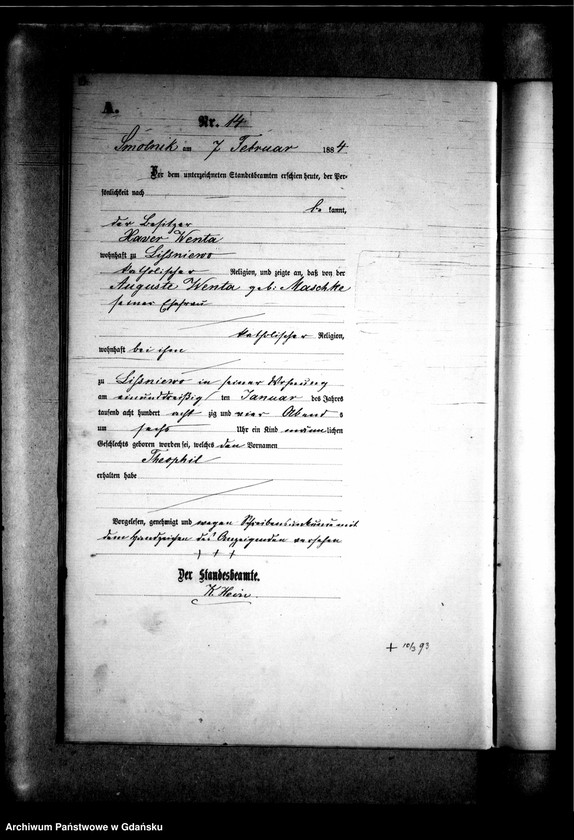 A.
Nr. 14
Smolnik am 7 Februar 1884
Vor dem unterzeichneten Standesbeamten erschien heute, der Per-
sönlichkeit nach
be kannt,
der Besitzer
Xaver Wenta
wohnhaft zu Lissniewo
katholischer Religion, und zeigte an, daß von der
Auguste Wenta geb. Maschke
seiner Ehefrau
katholischer Religion,
wohnhaft bei ihm
zu Lissniewo in seiner Wohnung
am einunddreißig ten Januar des Jahres
tausend acht hundert acht zig und vier Abend s
um sechs Uhr ein Kind männ lichen
Geschlechts geboren worden sei, welches den Vornamen
Theophil
erhalten habe
Vorgelesen, genehmigt und wegen Schreibensunkunde mit
dem Handzeichen des Anzeigenden versehen
+ + +
Der Standesbeamte.
K. Hein.
+ 10/3 93
Archiwum Państwowe w Gdańsku